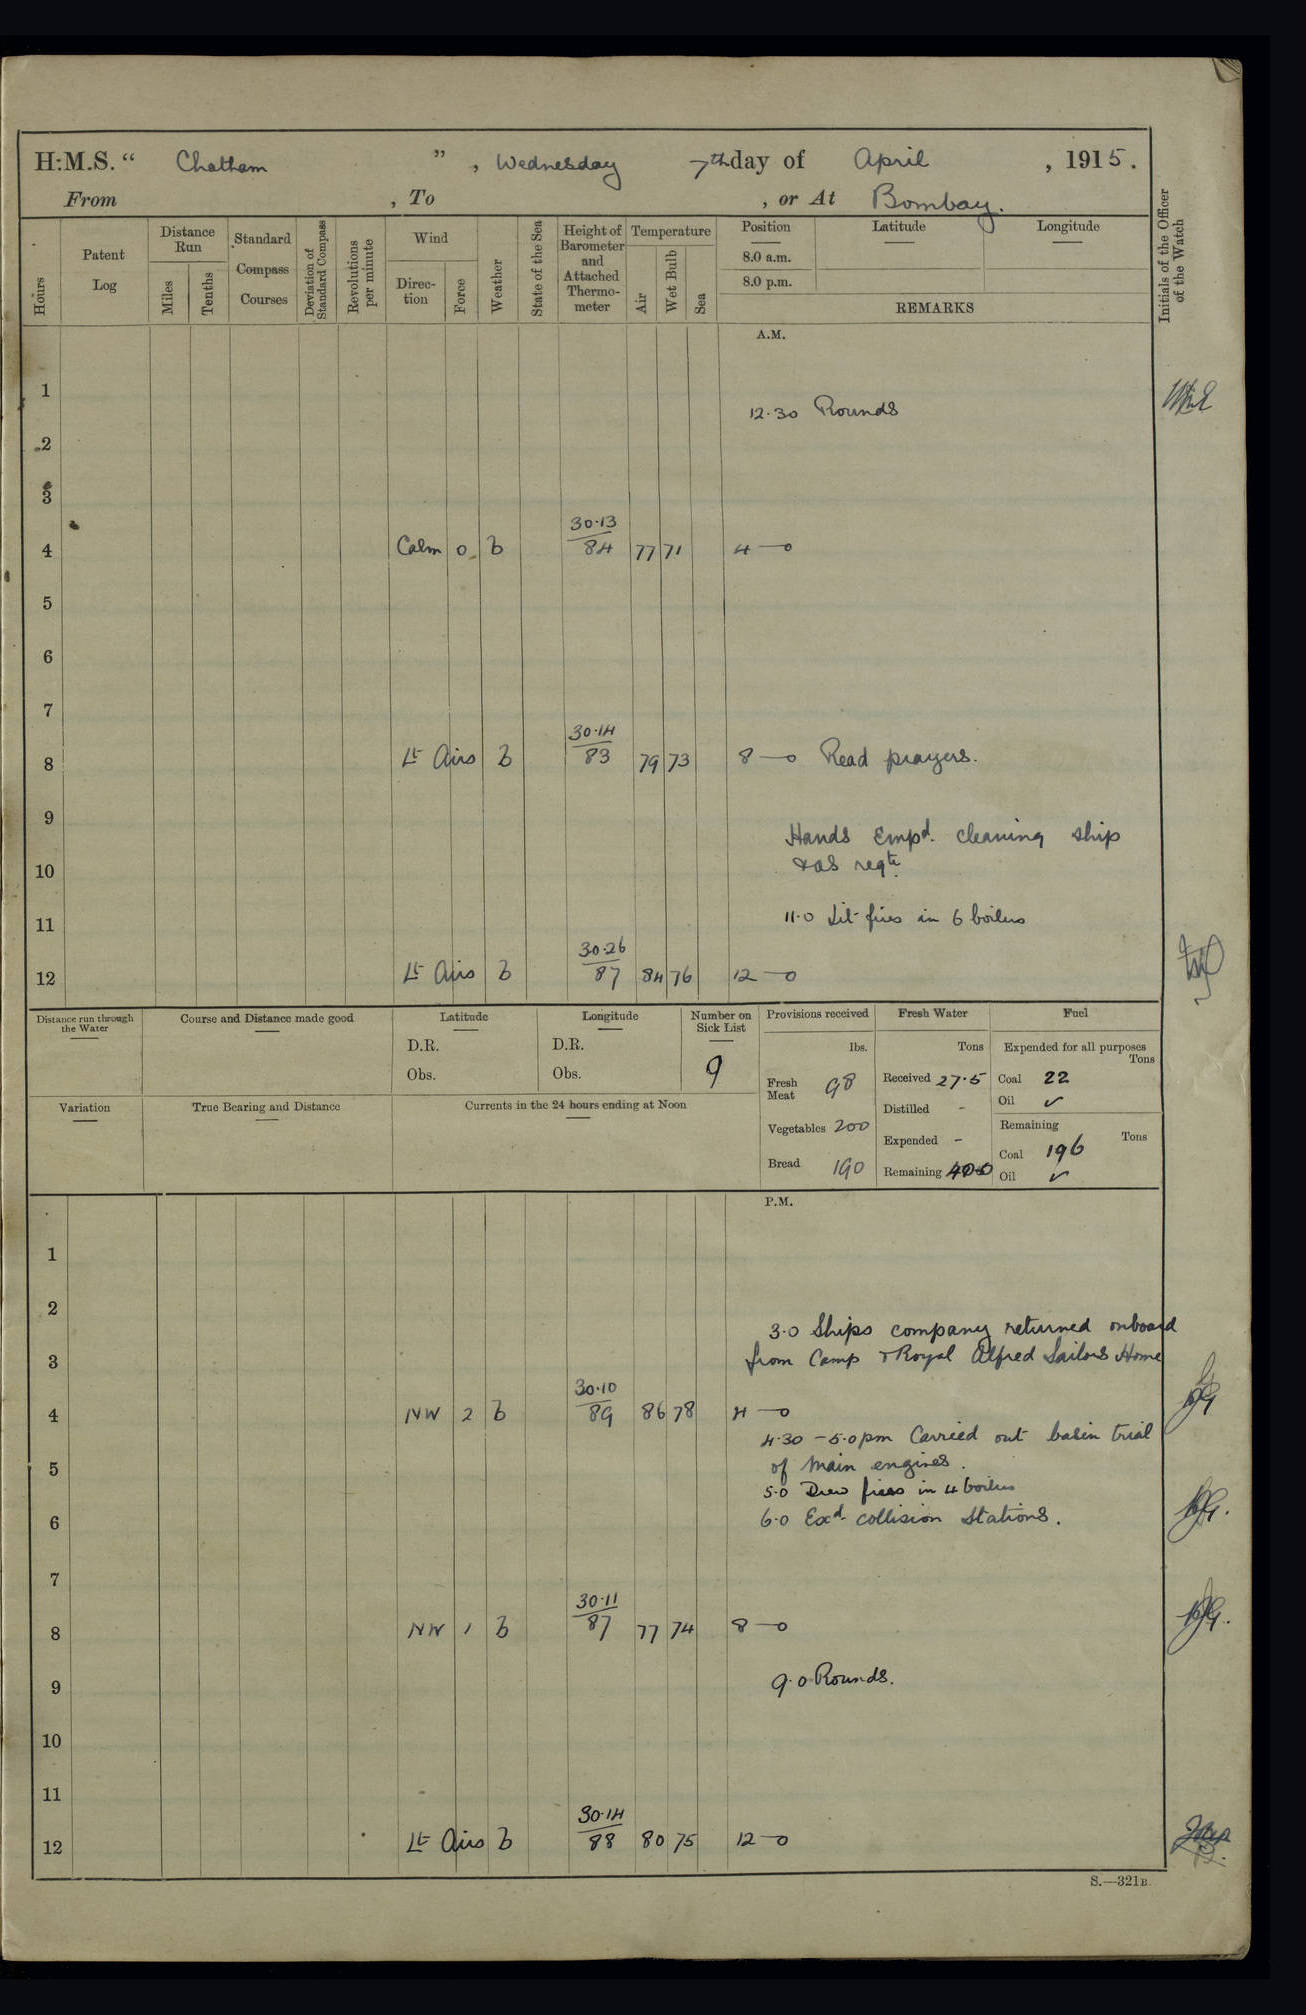 H.M.S. “ Chatham ” , Wednesday 7th day of April , 1915.
From , To , or At Bombay.
Hours
Patent Log
Distance Run
Miles
Tenths
Standard Compass Courses
Deviation of Standard Compass
Revolutions per minute
Wind
Direction
Force
Weather
State of the Sea
Height of Barometer and Attached Thermometer
Temperature
Air
Wet Bulb
Sea
Position
8.0 a.m.
8.0 p.m.
Latitude
Longitude
REMARKS
Initials of the Officer of the Watch
A.M.
1
12.30 Rounds
2
3
30.13
4 Calm 0 b 84 77 71 4—0
5
6
7
30.14
8 Lt Airs b 83 79 73 8—0 Read prayers.
9
Hands Empd. cleaning ship
10 & as reqte.
11 11.0 Lit fires in 6 boilers
30.26
12 Lt Airs b 87 84 76 12—0
Distance run through the Water
Course and Distance made good
Latitude
D.R.
Obs.
Longitude
D.R.
Obs.
Number on Sick List
9
Variation
True Bearing and Distance
Currents in the 24 hours ending at Noon
Provisions received
lbs.
Fresh Meat 98
Vegetables 200
Bread 190
Fresh Water
Tons
Received 27.5
Distilled -
Expended -
Remaining 400
Fuel
Expended for all purposes
Tons
Coal 22
Oil ✓
Remaining
Tons
Coal 196
Oil ✓
P.M.
1
2
3.0 Ships company returned onboard
3 from Camp & Royal Alfred Sailors Home
30.10
4 NW 2 b 89 86 78 4—0
4.30 – 5.0 pm Carried out basin trial
5 of main engines.
5.0 Drew fires in 4 boilers
6 6.0 Exd. collision Stations.
7
30.11
8 NW 1 b 87 77 74 8—0
9 9.0 Rounds.
10
11
30.14
12 Lt Airs b 88 80 75 12—0
S.—321B.